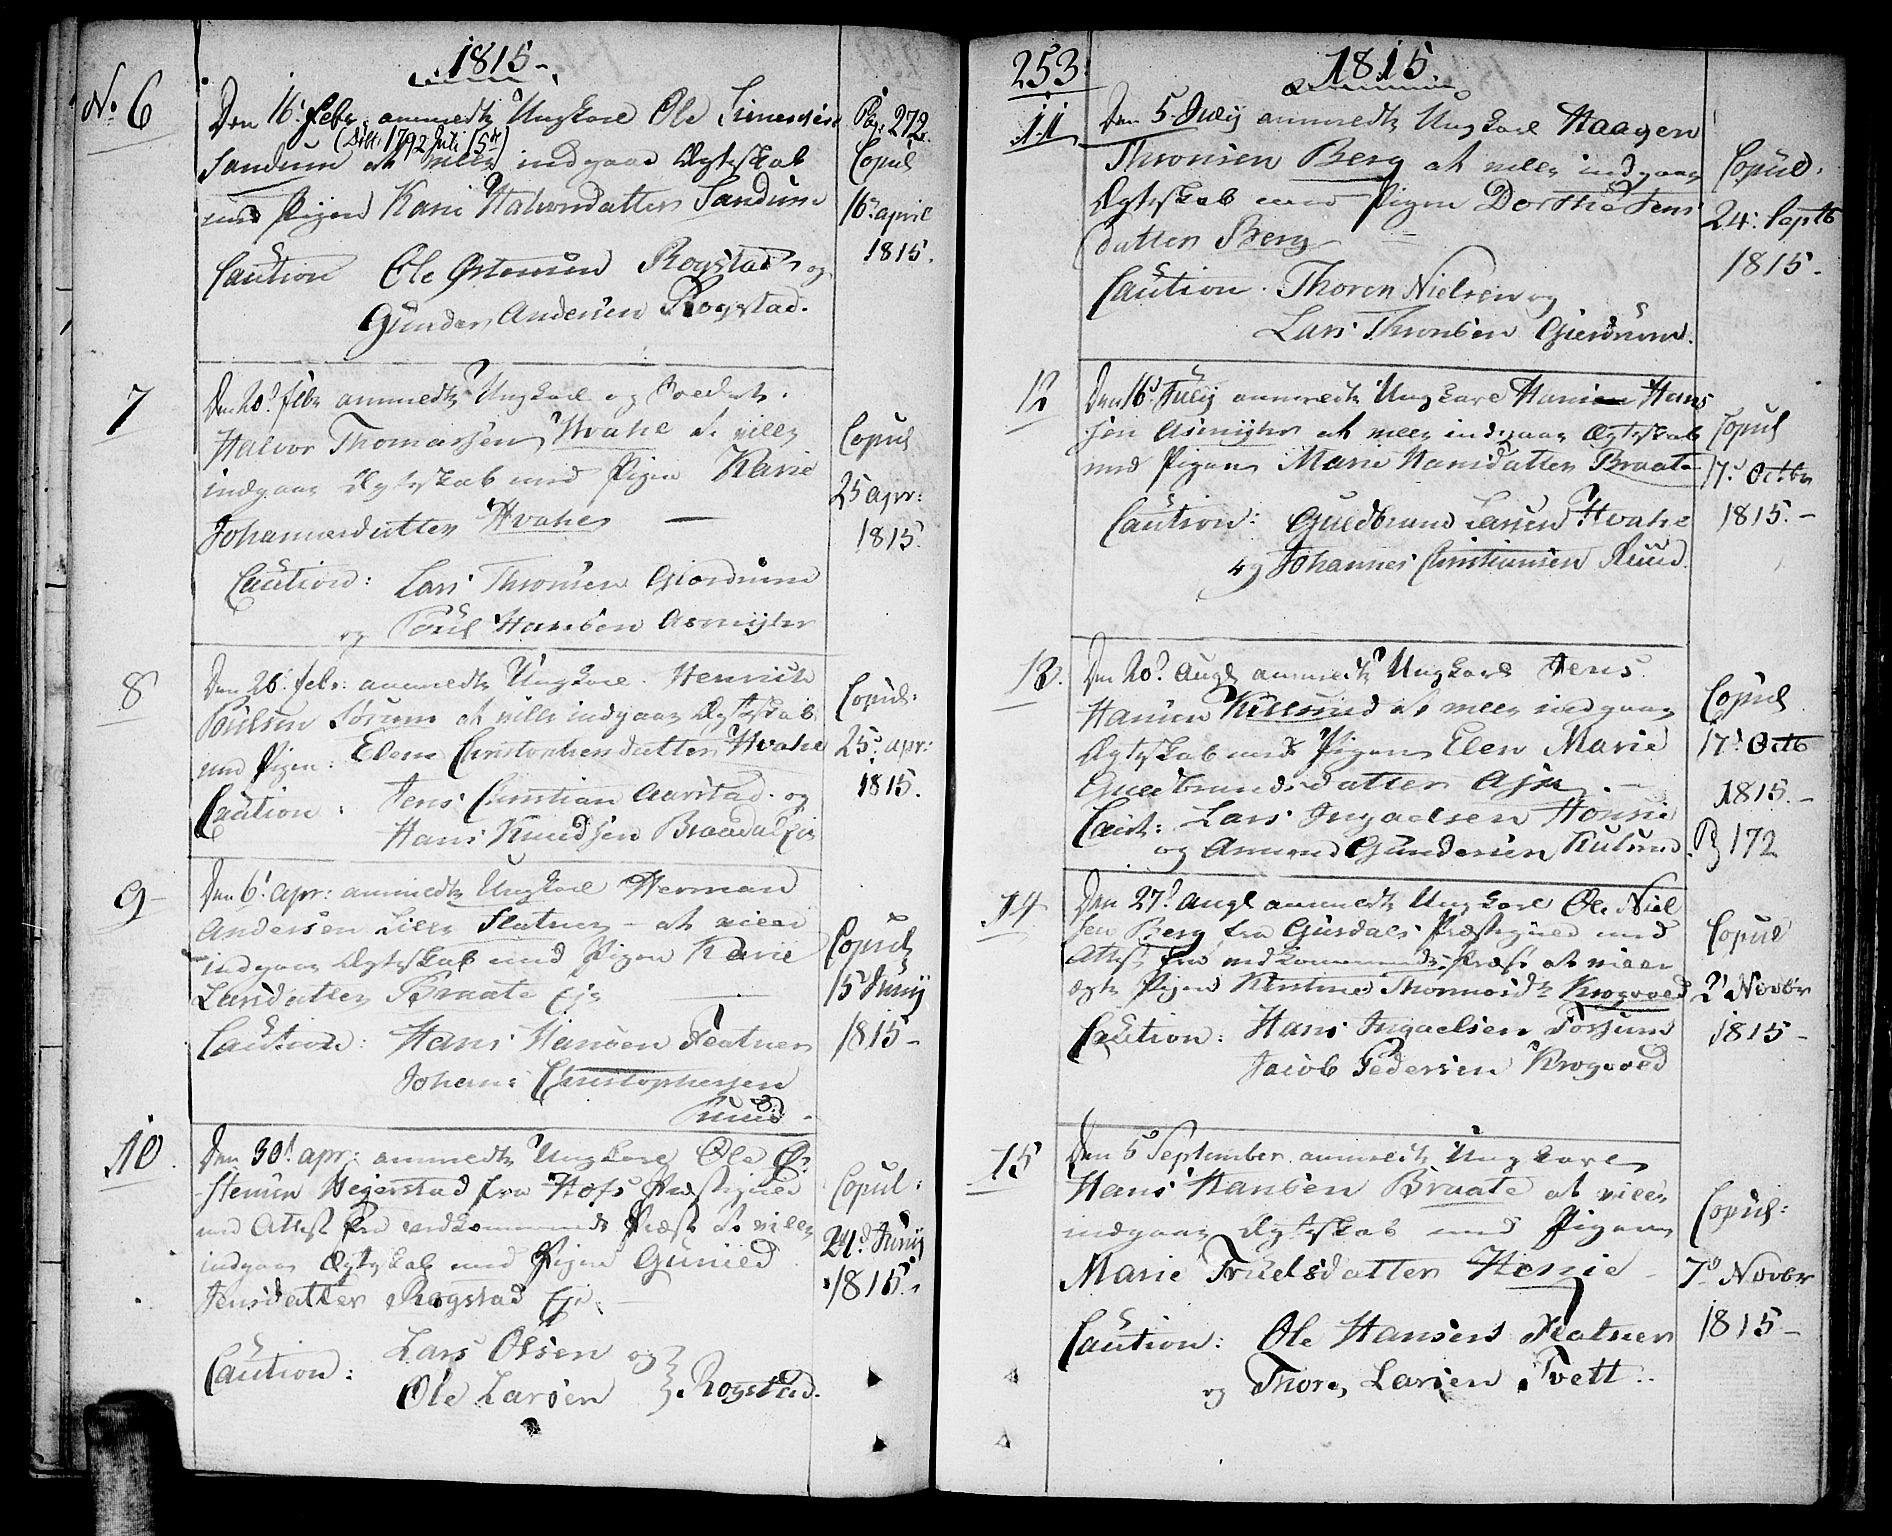 1815-
No 6
Den 16. Febr. anmeldte Ungkarl Ole Simensen
(Døbt 1792 Juli 15de)
Sandum at ville indgaae Ægteskab
med Pigen Kari Halvorsdatter Sandum
Caution Ole Ostensen Rogstad og
Gunder Andersen Rogstad.
Pag. 272.
Copul
16. april
1815.
7
Den 20d Febr anmeldte Ungkarl og
Halvor Thomassen Hvahe at ville
indgaae Ægteskab med Pigen Karie
Johannesdatter Hvahe
Caution: Lars Thronsen Giordrum
og Poul Hansen Asmyhr
Copul
25 apr:
1815.
8
Den 26. febr: anmeldte Ungkarl Henrich
Poulsen Sørum at ville indgaae Ægteskab
med Pigen: Elene Christophersdatter Hvahe
Caution: Jens Christian Aarstad og
Hans Knudsen Braadal
Copul:
25d apr:
1815.
9
Den 6t apr: anmeldte Ungkarl Herman
Andersen Lille Flatner at ville
indgaae Ægteskab med Pigen Karie
Larsdatter Braate Eje
Caution: Hans Hansen Flatner
Johans Christophersen
Ruud
Copul
15 Junij
1815-
10.
Den 30t apr: anmeldte Ungkarl Ole Ø
stensen Hegerstad fra Hofs Præstegield
med Attest fra vedkommende Præst at ville
indgaae Ægteskab med Pigen Gunild
Jensdatter Rogstad Eje
Caution: Lars Olsen og
Ole Larsen Rogstad.
Copul:
24d Junij
1815.
253.
1815.
11
Den 5. Julij anmeldte Ungkarl Haagen
Thronsen Berg at ville indgaae
Ægteskab med Pigen Dorthe Jens
datter Berg
Caution. Thoren Nielsen og
Lars Thronsen Gierdrum.
Copul.
24: Septb
1815.
12
Den 16d Julij anmeldte Ungkarl Hans Hans
sen Asmyhr at ville indgaae Ægteskab
med Pigen Marie Hansdatter Braate
Caution: Guldbrand Larsen Hvahe
og Johannes Christiansen Ruud.
Copul
17d Octbr
1815.-
13.
Den 20d Augl anmeldte Ungkarl Jens
Hansen Kulsrud at ville indgaae
Ægteskab med Pigen Elen Marie
Guldbrandsdatter Ask
Caut: Lars Ingaelsen Hønsie
og Amund Gundersen Kulsrud.
Copul
17d Octb
1815.-
P 172
14
Den 27d Augl anmeldte Ungkarl Ole Niel
sen Berg fra Gusdals Præstegield med
Attest fra vedkommende Præst at ville
ægte Pigen Kirstine Thommasdt Krogvold
Caution: Hans Ingaelsen Forsund
Jacob Pedersen Krogvold
Copul
2d Novbr
1815-
15
Den 5 September anmeldte Ungkarl
Hans Hansen Braate at ville
indgaae Ægteskab med Pigen
Marie Truelsdatter Hønsie
Caution: Ole Hansen Flatner
og Thore Larsen Tvett.
Copul:
7d Novbr
1815-